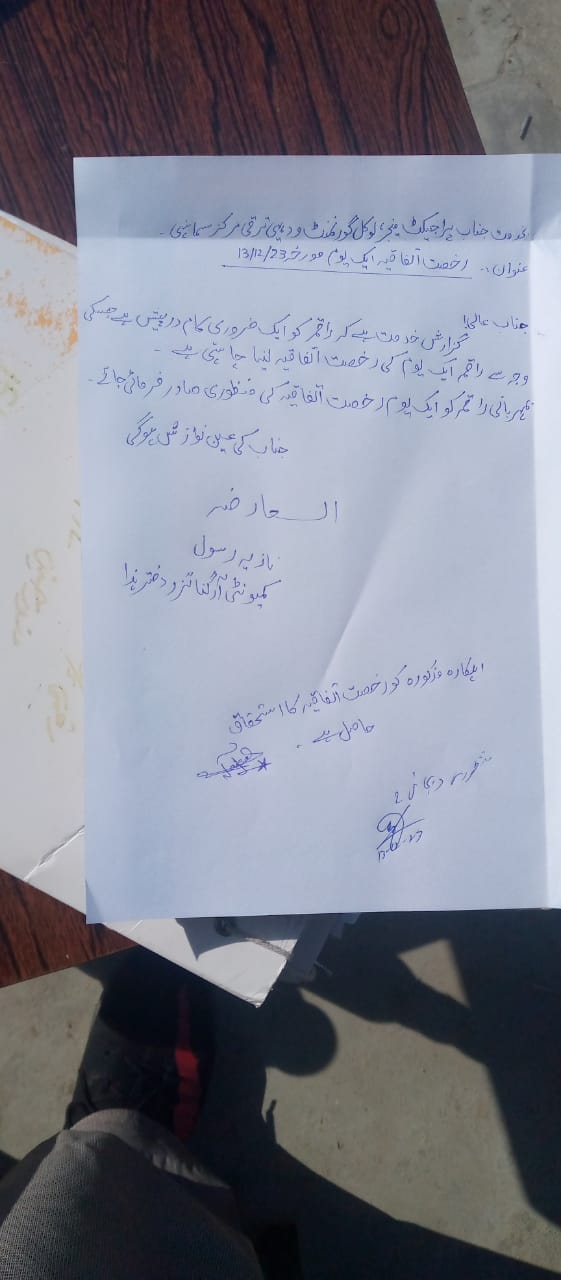 بخدمت جناب پراجیکٹ منیجر، لوکل گورنمنٹ و دیہی ترقی مرکز سماہنی۔
عنوان:۔ رخصت اتفاقیہ ایک یوم مورخہ 13/12/23
جناب عالی!
گزارش خدمت ہے کہ راقمہ کو ایک ضروری کام درپیش ہے جسکی
وجہ سے راقمہ ایک یوم کی رخصت اتفاقیہ لینا چاہتی ہے ۔
مہربانی راقمہ کو ایک یوم رخصت اتفاقیہ کی منظوری صادر فرمائی جائے۔
جناب کی عین نوازش ہوگی
العارضہ
نازیہ رسول
کمیونٹی آرگنائزر دفتر ہذا
اہلکارہ مذکورہ کو رخصت اتفاقیہ کا استحقاق
حاصل ہے ۔